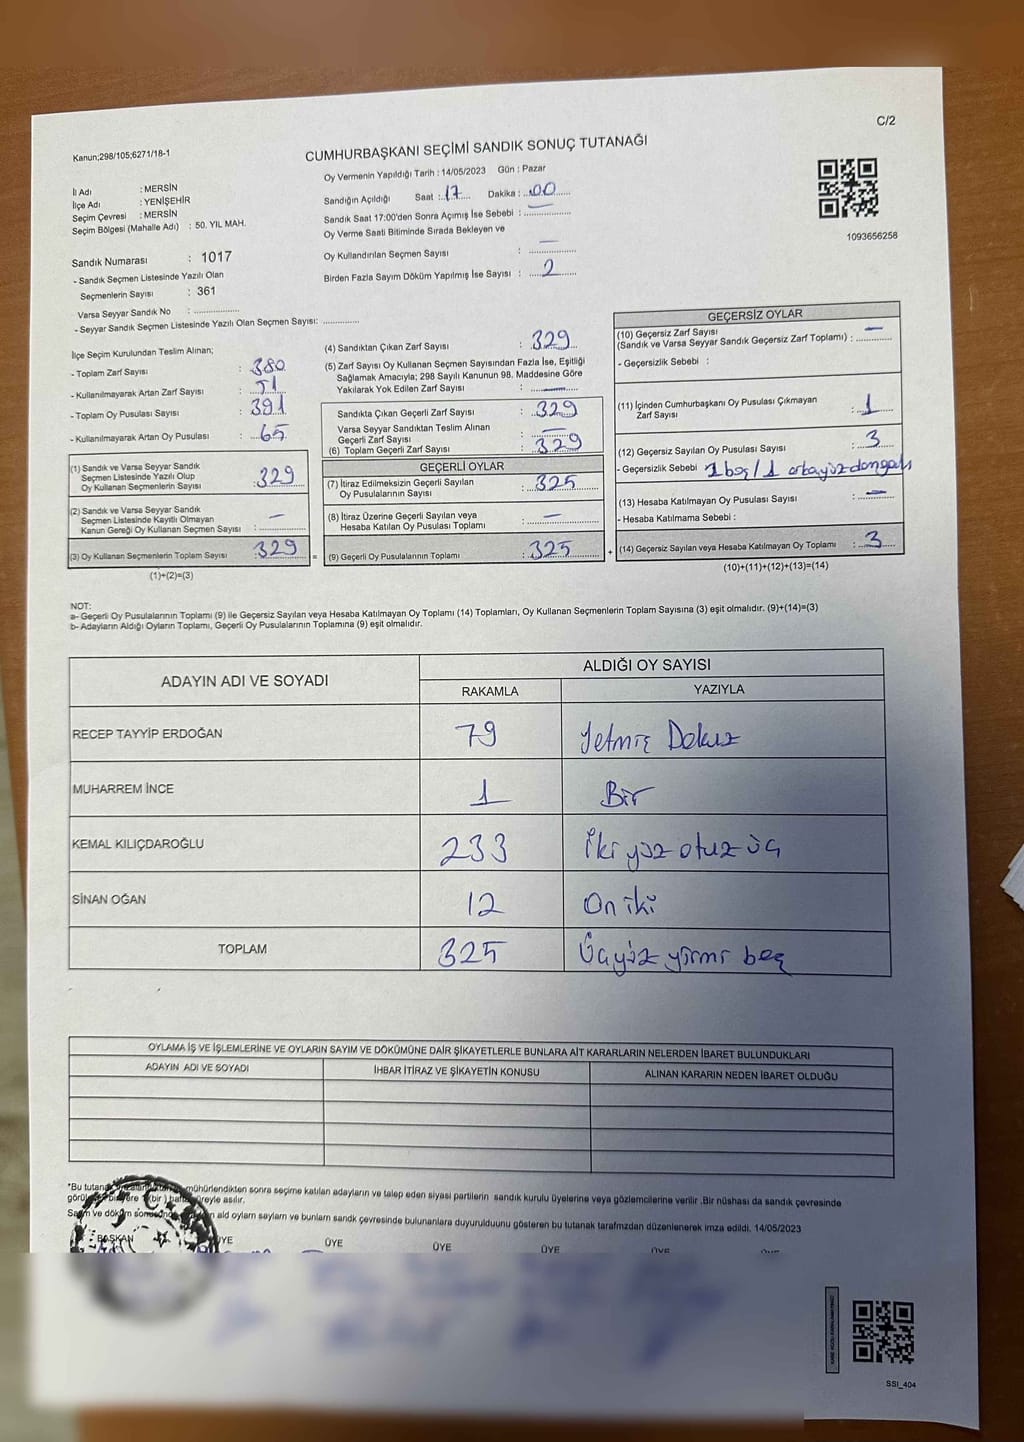 C/2
Kanun;298/105;6271/18-1
CUMHURBAŞKANI SEÇİMİ SANDIK SONUÇ TUTANAĞI
Oy Vermenin Yapıldığı Tarih : 14/05/2023 Gün : Pazar
İl Adı : MERSİN
İlçe Adı : YENİŞEHİR
Seçim Çevresi : MERSİN
Seçim Bölgesi (Mahalle Adı) : 50. YIL MAH.
Sandığın Açıldığı Saat : 17 Dakika : 00
Sandık Saat 17:00'den Sonra Açımış İse Sebebi : —
Oy Verme Saati Bitiminde Sırada Bekleyen ve
Oy Kullandırılan Seçmen Sayısı : —
Birden Fazla Sayım Döküm Yapılmış İse Sayısı : 2
1093656258
Sandık Numarası : 1017
- Sandık Seçmen Listesinde Yazılı Olan
Seçmenlerin Sayısı : 361
Varsa Seyyar Sandık No :
- Seyyar Sandık Seçmen Listesinde Yazılı Olan Seçmen Sayısı:
İlçe Seçim Kurulundan Teslim Alınan;
- Toplam Zarf Sayısı : 380
- Kullanılmayarak Artan Zarf Sayısı : 51
- Toplam Oy Pusulası Sayısı : 391
- Kullanılmayarak Artan Oy Pusulası : 65
(1) Sandık ve Varsa Seyyar Sandık
Seçmen Listesinde Yazılı Olup
Oy Kullanan Seçmenlerin Sayısı : 329
(2) Sandık ve Varsa Seyyar Sandık
Seçmen Listesinde Kayıtlı Olmayan
Kanun Gereği Oy Kullanan Seçmen Sayısı : —
(3) Oy Kullanan Seçmenlerin Toplam Sayısı : 329 =
(1)+(2)=(3)
(4) Sandıktan Çıkan Zarf Sayısı : 329
(5) Zarf Sayısı Oy Kullanan Seçmen Sayısından Fazla İse, Eşitliği
Sağlamak Amacıyla; 298 Sayılı Kanunun 98. Maddesine Göre
Yakılarak Yok Edilen Zarf Sayısı : —
Sandıkta Çıkan Geçerli Zarf Sayısı : 329
Varsa Seyyar Sandıktan Teslim Alınan
Geçerli Zarf Sayısı : —
(6) Toplam Geçerli Zarf Sayısı : 329
GEÇERLİ OYLAR
(7) İtiraz Edilmeksizin Geçerli Sayılan
Oy Pusulalarının Sayısı : 325
(8) İtiraz Üzerine Geçerli Sayılan veya
Hesaba Katılan Oy Pusulası Toplamı : —
(9) Geçerli Oy Pusulalarının Toplamı : 325 +
GEÇERSİZ OYLAR
(10) Geçersiz Zarf Sayısı
(Sandık ve Varsa Seyyar Sandık Geçersiz Zarf Toplamı) : —
- Geçersizlik Sebebi :
(11) İçinden Cumhurbaşkanı Oy Pusulası Çıkmayan
Zarf Sayısı : 1
(12) Geçersiz Sayılan Oy Pusulası Sayısı : 3
- Geçersizlik Sebebi 1 boş / 1
(13) Hesaba Katılmayan Oy Pusulası Sayısı : —
- Hesaba Katılmama Sebebi :
(14) Geçersiz Sayılan veya Hesaba Katılmayan Oy Toplamı : 3
(10)+(11)+(12)+(13)=(14)
NOT:
a- Geçerli Oy Pusulalarının Toplamı (9) ile Geçersiz Sayılan veya Hesaba Katılmayan Oy Toplamı (14) Toplamları, Oy Kullanan Seçmenlerin Toplam Sayısına (3) eşit olmalıdır. (9)+(14)=(3)
b- Adayların Aldığı Oyların Toplamı, Geçerli Oy Pusulalarının Toplamına (9) eşit olmalıdır.
ADAYIN ADI VE SOYADI ALDIĞI OY SAYISI
RAKAMLA YAZIYLA
RECEP TAYYİP ERDOĞAN 79 Yetmiş Dokuz
MUHARREM İNCE 1 Bir
KEMAL KILIÇDAROĞLU 233 İki yüz otuz üç
SİNAN OĞAN 12 On iki
TOPLAM 325 Üçyüz yirmi beş
OYLAMA İŞ VE İŞLEMLERİNE VE OYLARIN SAYIM VE DÖKÜMÜNE DAİR ŞİKAYETLERLE BUNLARA AİT KARARLARIN NELERDEN İBARET BULUNDUKLARI
ADAYIN ADI VE SOYADI İHBAR İTİRAZ VE ŞİKAYETİN KONUSU ALINAN KARARIN NEDEN İBARET OLDUĞU
*Bu mühürlendikten sonra seçime katılan adayların ve talep eden siyasi partilerin sandık kurulu üyelerine veya gözlemcilerine verilir .Bir nüshası da sandık çevresinde
süreyle asılır.
Sayım ve döküm ald oylarn saylarn ve bunlarn sandk çevresinde bulunanlara duyurulduunu gösteren bu tutanak tarafmzdan düzenlenerek imza edildi. 14/05/2023
BAŞKAN ÜYE ÜYE ÜYE ÜYE ÜYE
SSI_404